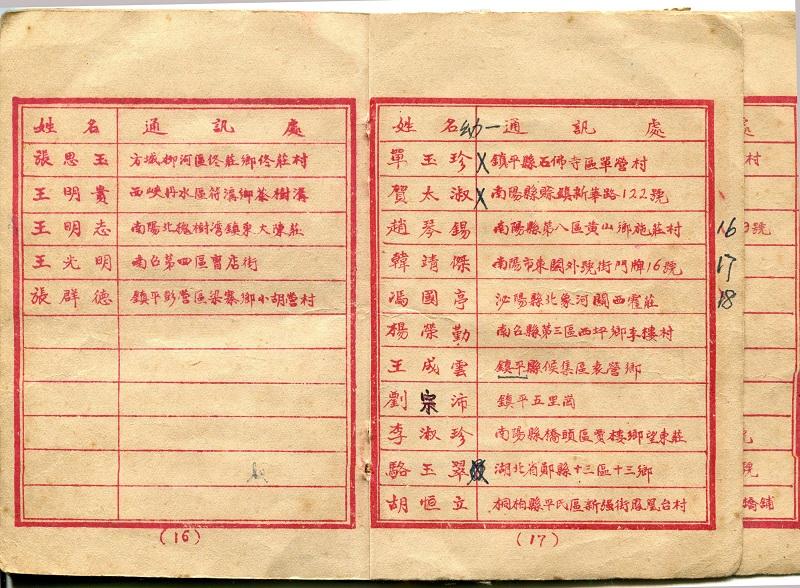 姓名 通訊處
張思玉 方城柳河區佟莊鄉佟莊村
王明貴 西峽丹水區符溪鄉茶樹溝
王明志 南陽北槐樹灣鎮東大陳莊
王光明 南召第四區曹店街
張群德 鎮平彭營區梁寨鄉小胡營村
(16)
姓名 幼一 通訊處
單玉珍 X 鎮平縣石佛寺區單營村
賀太淑 X 南陽縣賒鎮新華路122號
趙琴錫 南陽縣第八區黃山鄉施莊村
韓靖傑 南陽市東關外號街門牌16號
馮國亭 泌陽縣北象河關西霍莊
楊榮勤 南召縣第三區西坪鄉李樓村
王成雲 鎮平縣侯集區袁營鄉
劉宗沛 鎮平五里崗
李淑珍 南陽縣橋頭區賈樓鄉望東莊
駱玉翠 湖北省鄖縣十三區十三鄉
胡恒立 桐柏縣平氏區新張街鳳凰台村
(17)
處
村
16 號
17
18
號
橋舖